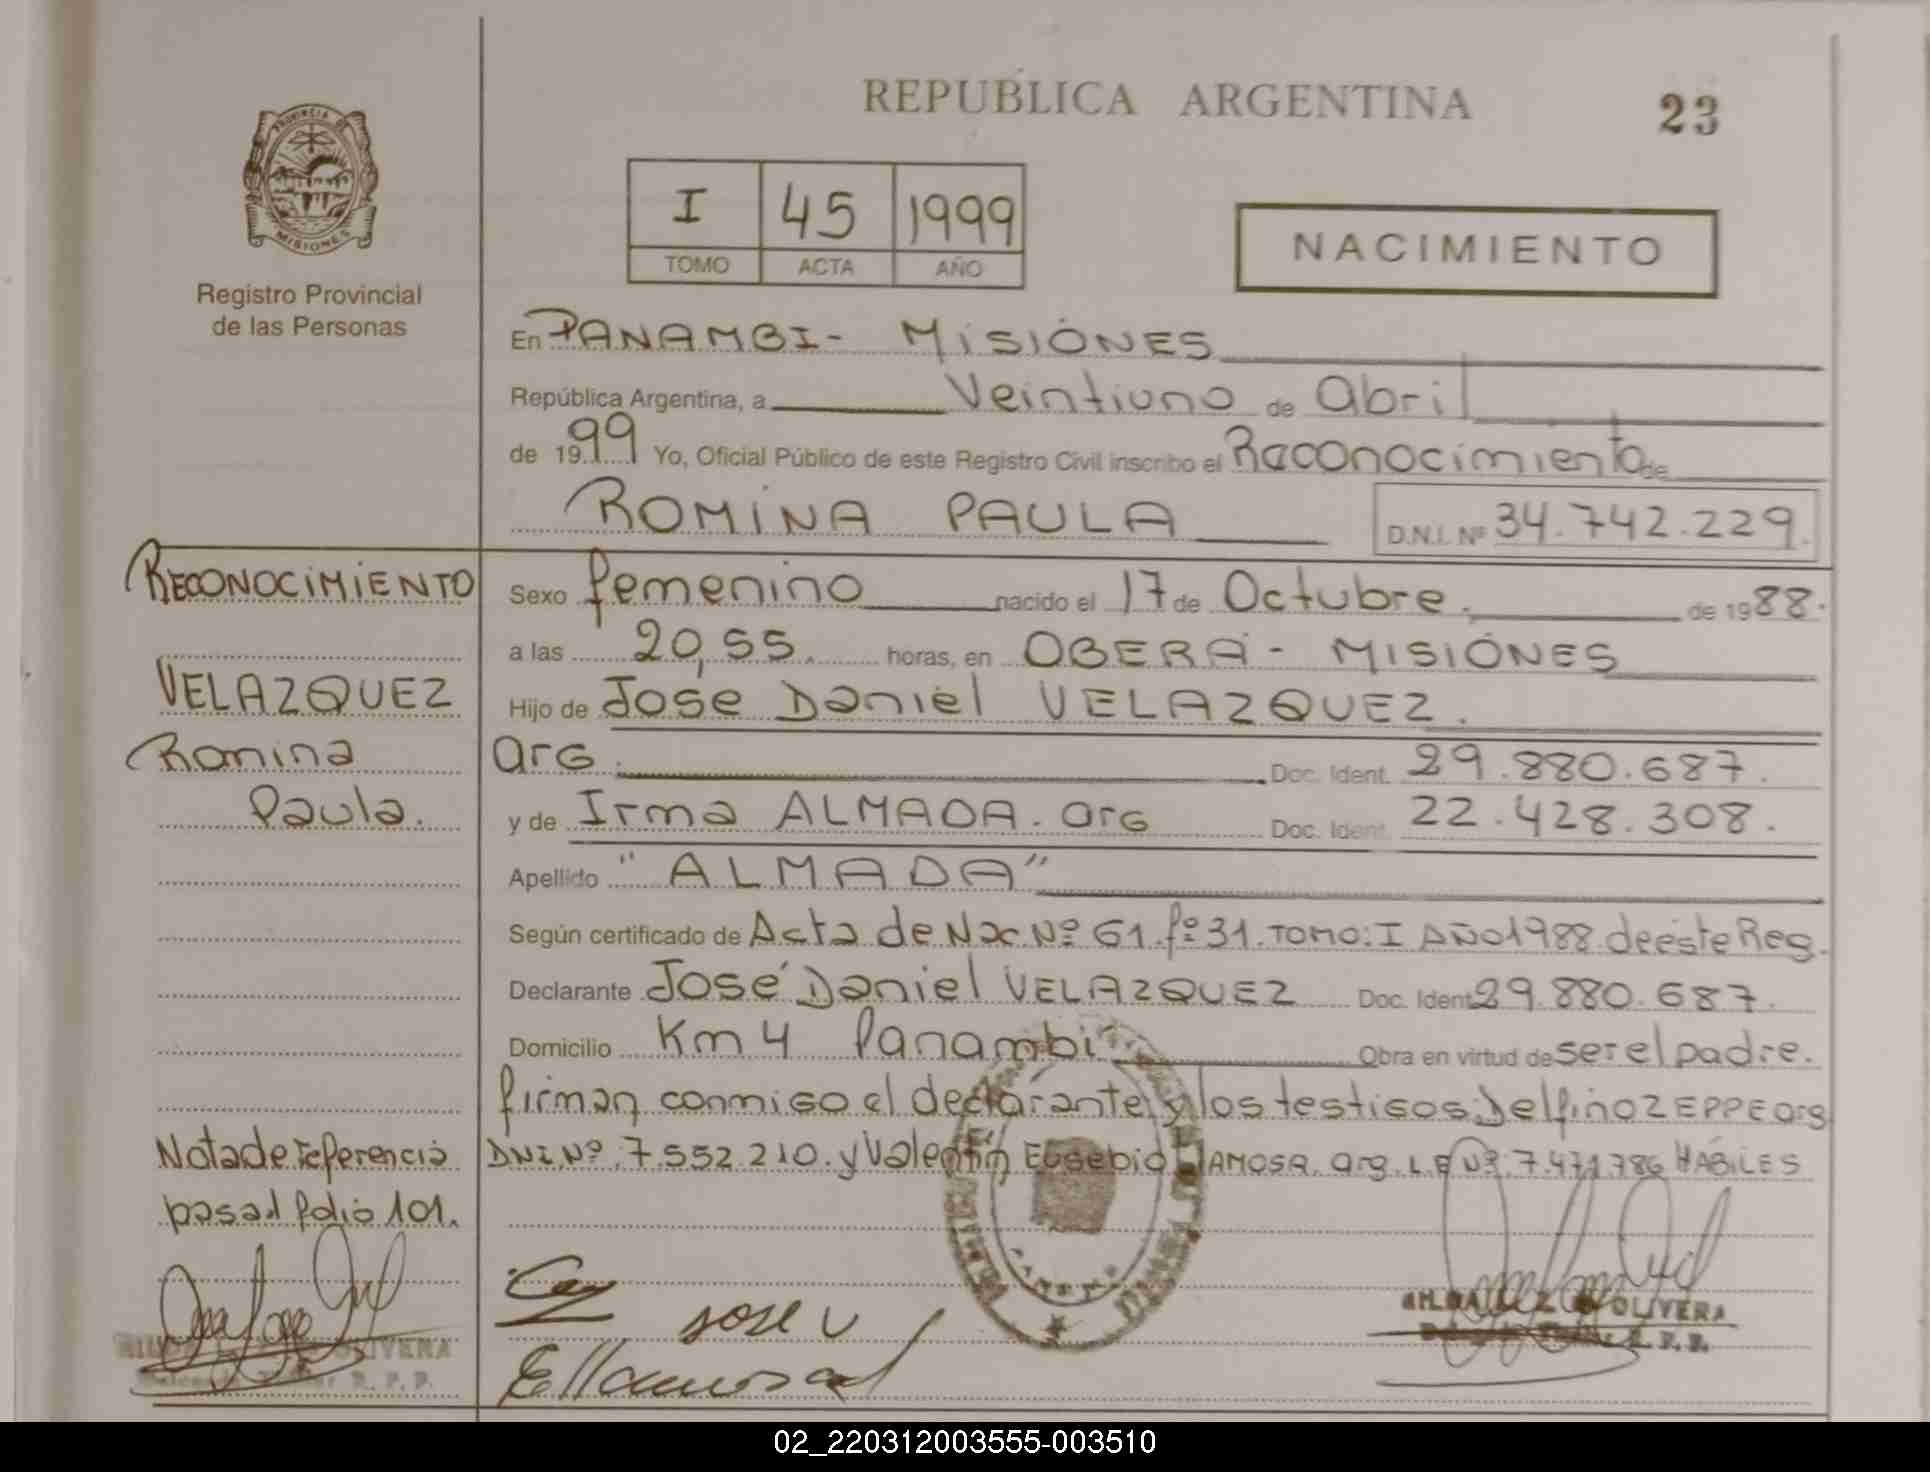 REPUBLICA ARGENTINA
23
PROVINCIA DE
MISIONES
Registro Provincial
de las Personas
I 45 1999
TOMO ACTA AÑO
NACIMIENTO
En PANAMBI - MISIONES
República Argentina, a Veintiuno de abril
de 1999 Yo, Oficial Público de este Registro Civil inscribo el Reconocimiento de
ROMINA PAULA D.N.I. Nº 34.742.229.
RECONOCIMIENTO
VELAZQUEZ
Romina
Paula.
Sexo femenino nacido el 17 de Octubre. de 1988.
a las 20,55. horas, en OBERÁ - MISIONES
Hijo de José Daniel VELAZQUEZ.
arg. Doc. Ident. 29.880.687.
y de Irma ALMADA. arg Doc. Ident. 22.428.308.
Apellido "ALMADA"
Según certificado de Acta de Nac Nº 61. fº 31. TOMO: I AÑO 1988. de éste Reg.
Declarante José Daniel VELAZQUEZ Doc. Ident 29.880.687.
Domicilio Km 4 Panambí Obra en virtud de ser el padre.
firman conmigo el declarante y los testigos: Delfino ZEPPE arg
DNI. Nº. 7.552.210. y Valentín Eusebio LAMOSA. arg. L.E Nº. 7.471.786 HÁBILES
Nota de referencia
pasa al folio 101.
JOSE V
OLIVERA
R. P. P.
OLIVERA
R. P. P.
02_220312003555-003510